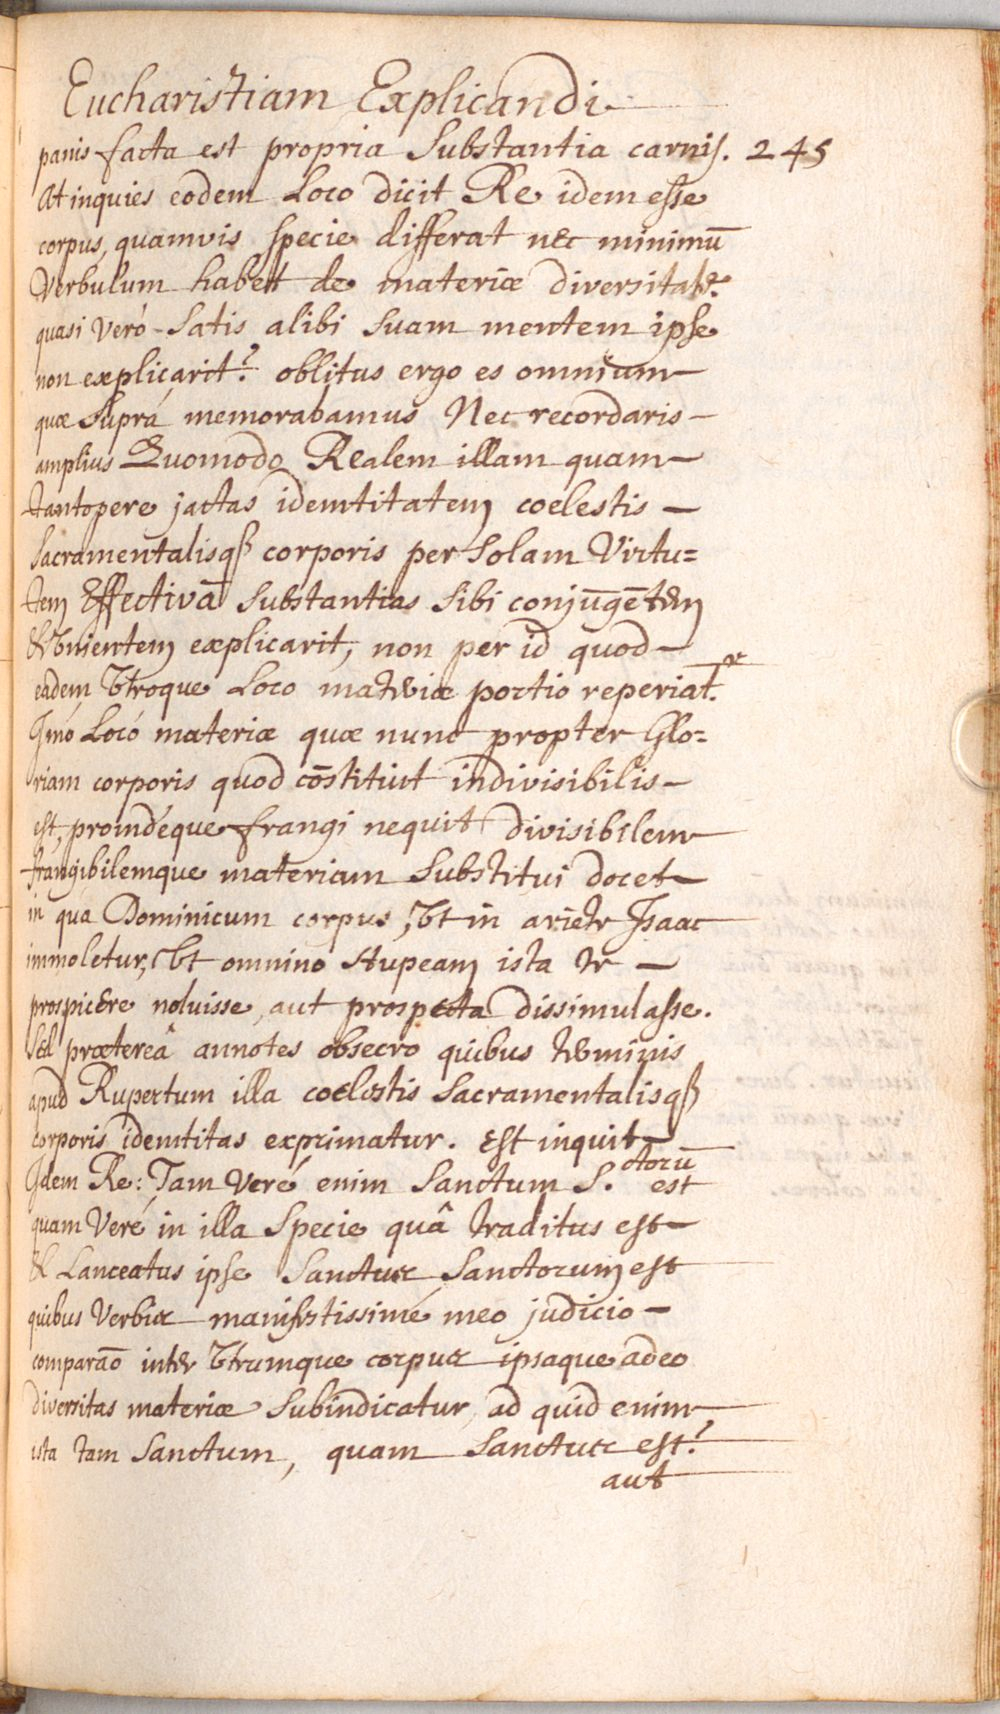 Eucharistiam Explicandi
panis facta est propria Substantia carnis. 245
At inquies eodem Loco dicit Re idem esse
corpus, quamvis specie differat nec minimū
Verbulum habet de materiæ diversitate.
quasi Veró Satis alibi suam mentem ipse
non explicarit? oblitus ergo es omnium
quæ Suprá memorabamus Nec recordaris
amplius Quomodo Realem illam quam
tantopere jactas identitatem coelestis
Sacramentalisqȝ corporis per Solam Virtu=
tem Effectivā Substantias Sibi conjūgētem
& Vnientem explicarit, non per id quod
eadem Vtroque Loco materiæ portio reperiat.ʳ
Imó Locó materiæ quæ nunc propter Glo=
riam corporis quod cōstituit indivisibilis
est, proindéque frangi nequit divisibilem
frangibilemque materiam Substitui docet
in qua Dominicum corpus, Vt in ariete Isaac
immoletur, Vt omnino stupeam ista te
prospicere noluisse, aut prospecta dissimulasse.
Sed prætereâ annotes obsecro quibus terminis
apud Rupertum illa coelestis Sacramentalisqȝ
corporis identitas exprimatur. Est inquit
Idem Re: Tam Veré enim Sanctum S.ctorū est
quam Veré in illa Specie quâ traditus est
& Lanceatus ipse Sanctus Sanctorum est
quibus Verbis manifestissimé meo judicio
comparāo inter Vtrumque corpus ipsaque adeo
diversitas materiæ Subindicatur, ad quid enim
ista tam Sanctum, quam Sanctus est?
aut